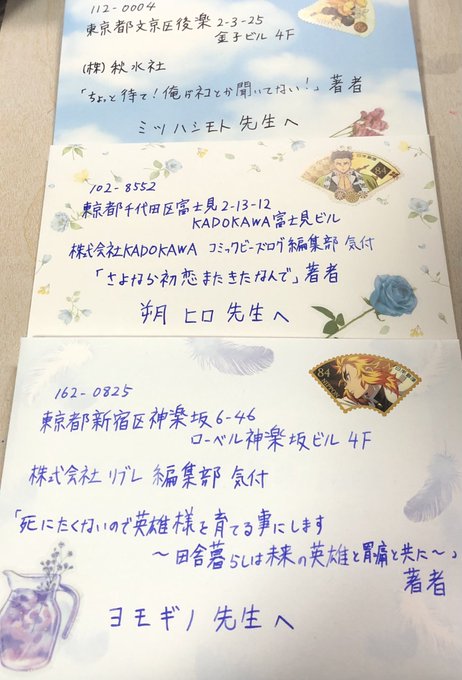 112-0004
東京都文京区後楽2-3-25
金子ビル 4F
(株)秋水社
「ちょっと待て!俺がネコとか聞いてない!」著者
ミツハシモト 先生へ
102-8552
東京都千代田区富士見2-13-12
KADOKAWA富士見ビル
株式会社KADOKAWA コミックビーズログ編集部 気付
「さよなら初恋またきたなんで」著者
朔 ヒロ 先生へ
84
162-0825
東京都新宿区神楽坂6-46
ローベル神楽坂ビル 4F
株式会社 リブレ 編集部 気付
「死にたくないので英雄様を育てる事にします
〜田舎暮らしは未来の英雄と胃痛と共に〜」
著者
ヨモギノ 先生へ
84